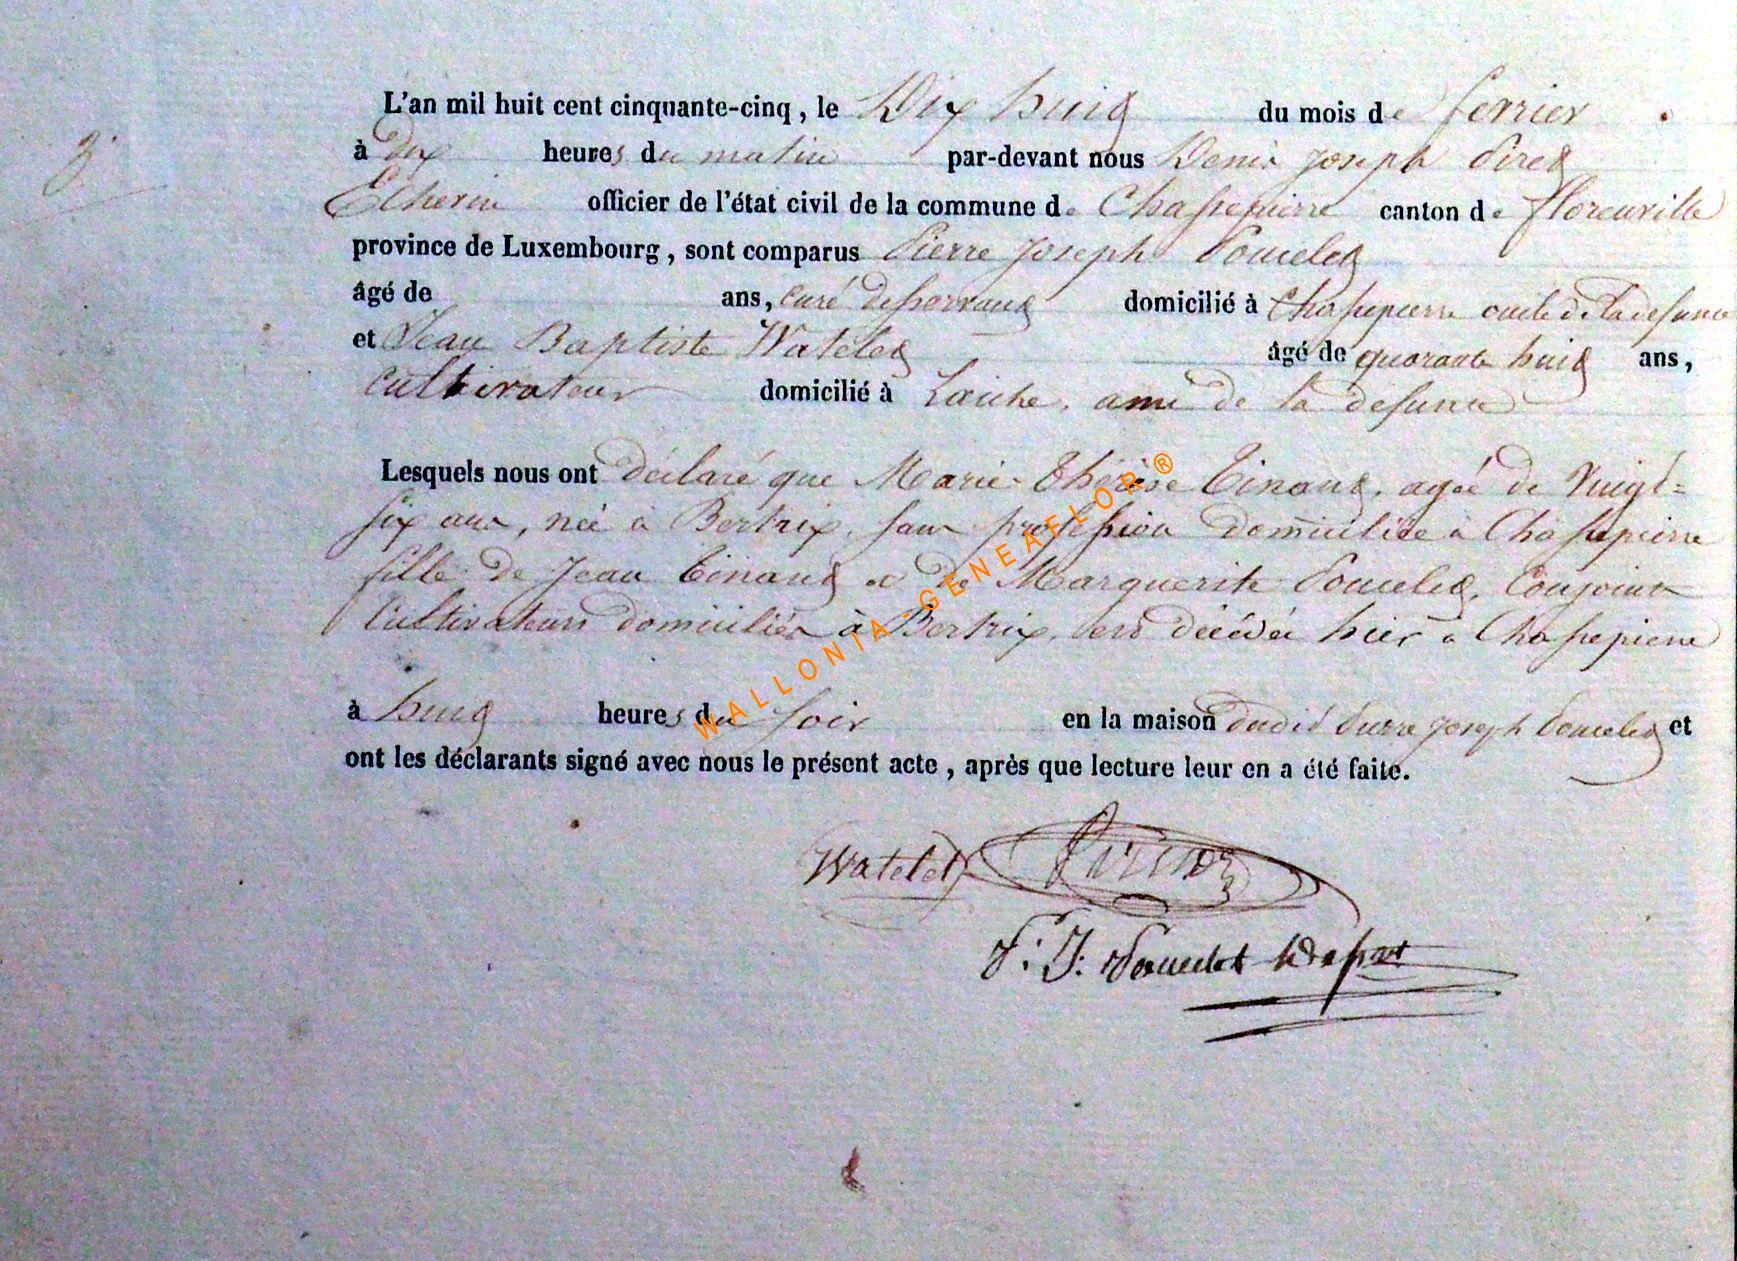 3.
L'an mil huit cent cinquante-cinq, le Dix huit du mois de fevrier
à dix heures du matin par-devant nous Denis Joseph Piret
officier de l'état civil de la commune de Chassepierre canton de florenville
province de Luxembourg, sont comparus Pierre Joseph Poncelet
âgé de ans, curé desservant domicilié à Chassepierre oncle de la defunte
et Jean Baptiste Watelet âgé de quarante huit ans,
cultivateur domicilié à Laiche, ami de la defunte
Lesquels nous ont déclaré que Marie Thérèse Tinant, agée de Vingt-
six ans, née à Bertrix, sans profession domiciliée à Chassepierre
fille de Jean Tinant et de Marguerite Poncelet, Conjoints
Cultivateurs domiciliés à Bertrix, est décédée hier à Chassepierre
à huit heures du soir en la maison dudit Pierre Joseph Poncelet et
ont les déclarants signé avec nous le présent acte, après que lecture leur en a été faite.
WALLONIA-GENEAFLOR®
Watelet
P. J. Poncelet